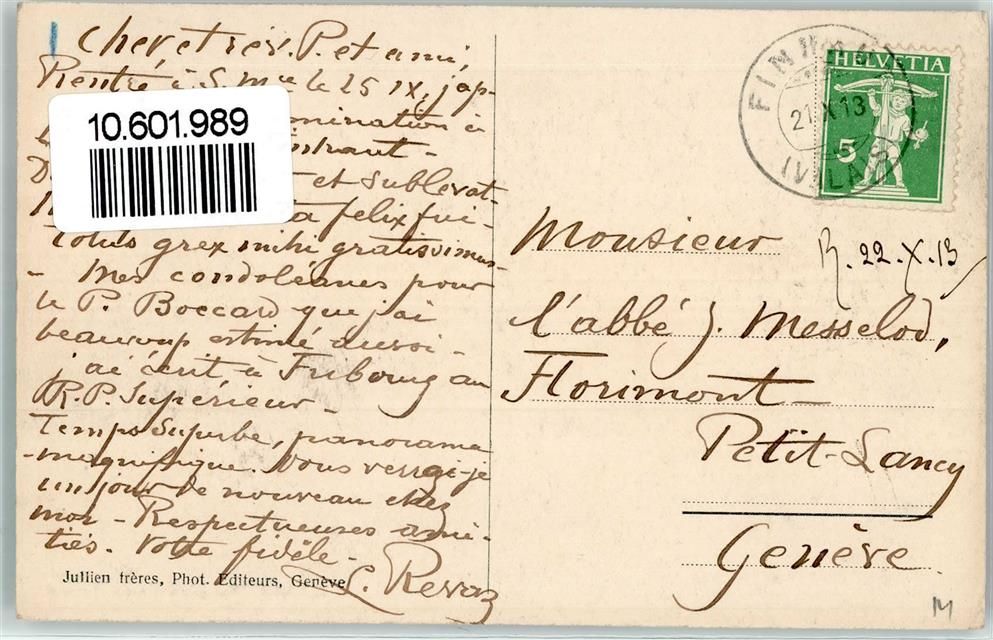 Cher et rév. P. et ami,
Rentré à S. Mce le 25 IX, j'ap-
10.601.989
nomination à
et sublevat
felix fui
totus grex mihi gratissimus
- Mes condoléances pour
le P. Boccard que j'ai
beaucoup estimé
j'ai écrit à Fribourg au
R. P. Supérieur -
Temps superbe, panorama
magnifique. Vous verrai-je
un jour de nouveau chez
moi - Respectueuses ami-
tiés. Votre fidèle -
C. Revaz
Jullien frères, Phot. Editeurs, Genève
HELVETIA
5
21 X 13
Monsieur
R. 22.X.13
l'abbé J. Messelod,
Florimont -
Petit-Lancy
Genève